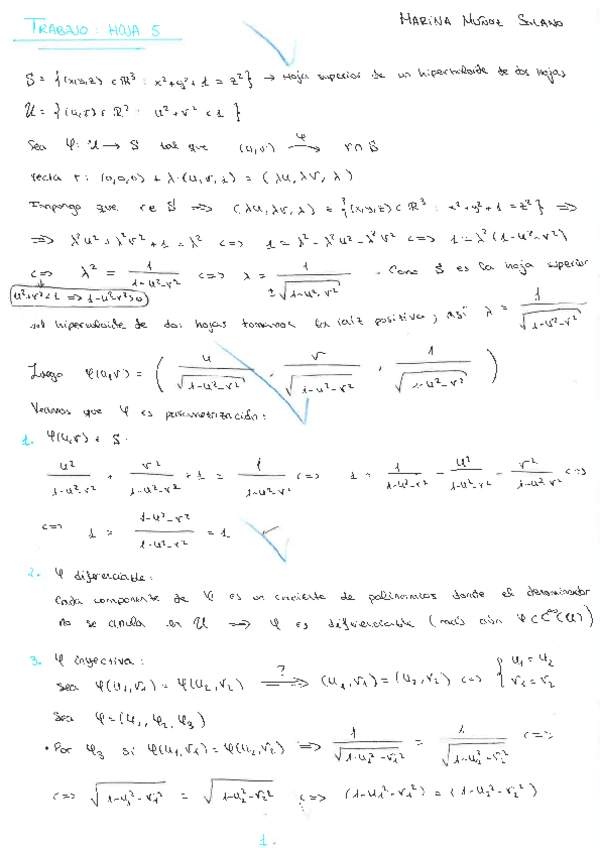 TRABAJO: HOJA 5
MARINA MUÑOZ SOLANO
S = {(x,y,z) ∈ ℝ³ : x²+y²+1 = z²} → Hoja superior de un hiperboloide de dos hojas
U = {(u,v) ∈ ℝ² : u²+v² < 1}
Sea φ: U → S tal que (u,v) →φ r∩S
recta r: (0,0,0) + λ·(u,v,1) = (λu, λv, λ)
Impongo que r∈S ⟹ (λu, λv, λ) ∈ {(x,y,z) ∈ ℝ³ : x²+y²+1 = z²} ⟹
⟹ λ²u²+λ²v²+1 = λ² <=> 1 = λ²-λ²u²-λ²v² <=> 1 = λ²(1-u²-v²)
<=> λ² = 1/(1-u²-v²) <=> λ = 1/±√(1-u²-v²) . Como S es la hoja superior
u²+v²<1 ⟹ 1-u²-v²>0
hiperboloide de dos hojas tomamos la raíz positiva, así λ = 1/√(1-u²-v²)
Luego φ(u,v) = ( u/√(1-u²-v²) , v/√(1-u²-v²) , 1/√(1-u²-v²) )
Veamos que φ es parametrización:
1. φ(u,v) ∈ S.
u²/(1-u²-v²) + v²/(1-u²-v²) + 1 = 1/(1-u²-v²) <=> 1 = 1/(1-u²-v²) - u²/(1-u²-v²) - v²/(1-u²-v²) <=>
<=> 1 = (1-u²-v²)/(1-u²-v²) = 1.
2. φ diferenciable:
Cada componente de φ es un cociente de polinomios donde el denominador
no se anula en U ⟹ φ es diferenciable (más aún φ∈C^∞(U))
3. φ inyectiva:
Sea φ(u₁,v₁) = φ(u₂,v₂) ⟹? (u₁,v₁) = (u₂,v₂) <=> { u₁=u₂ v₁=v₂
Sea φ=(φ₁,φ₂,φ₃)
• Por φ₃ si φ(u₁,v₁) = φ(u₂,v₂) ⟹ 1/√(1-u₁²-v₁²) = 1/√(1-u₂²-v₂²) <=>
<=> √(1-u₁²-v₁²) = √(1-u₂²-v₂²) <=> (1-u₁²-v₁²) = (1-u₂²-v₂²)
1.